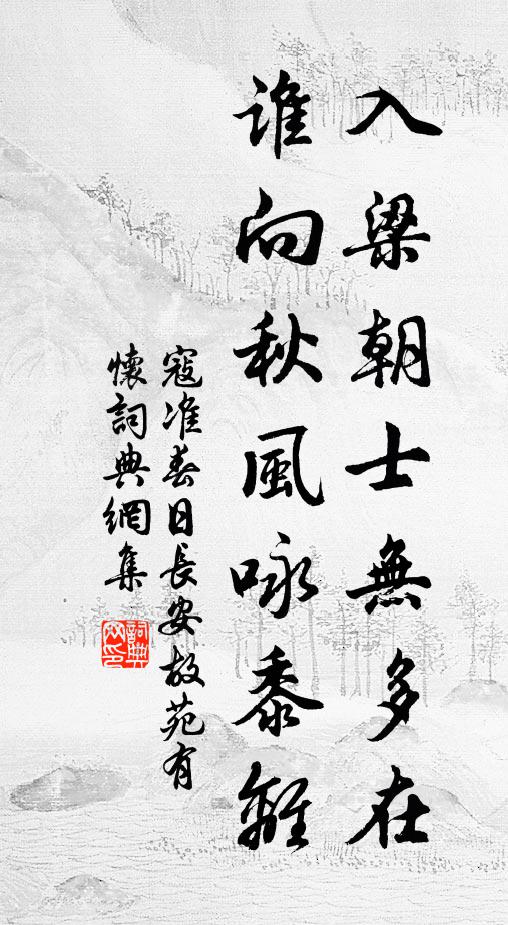 入梁朝士無多在
誰向秋風咏黍離
寇准春日長安故苑有
懷詞典網集
詞典網印